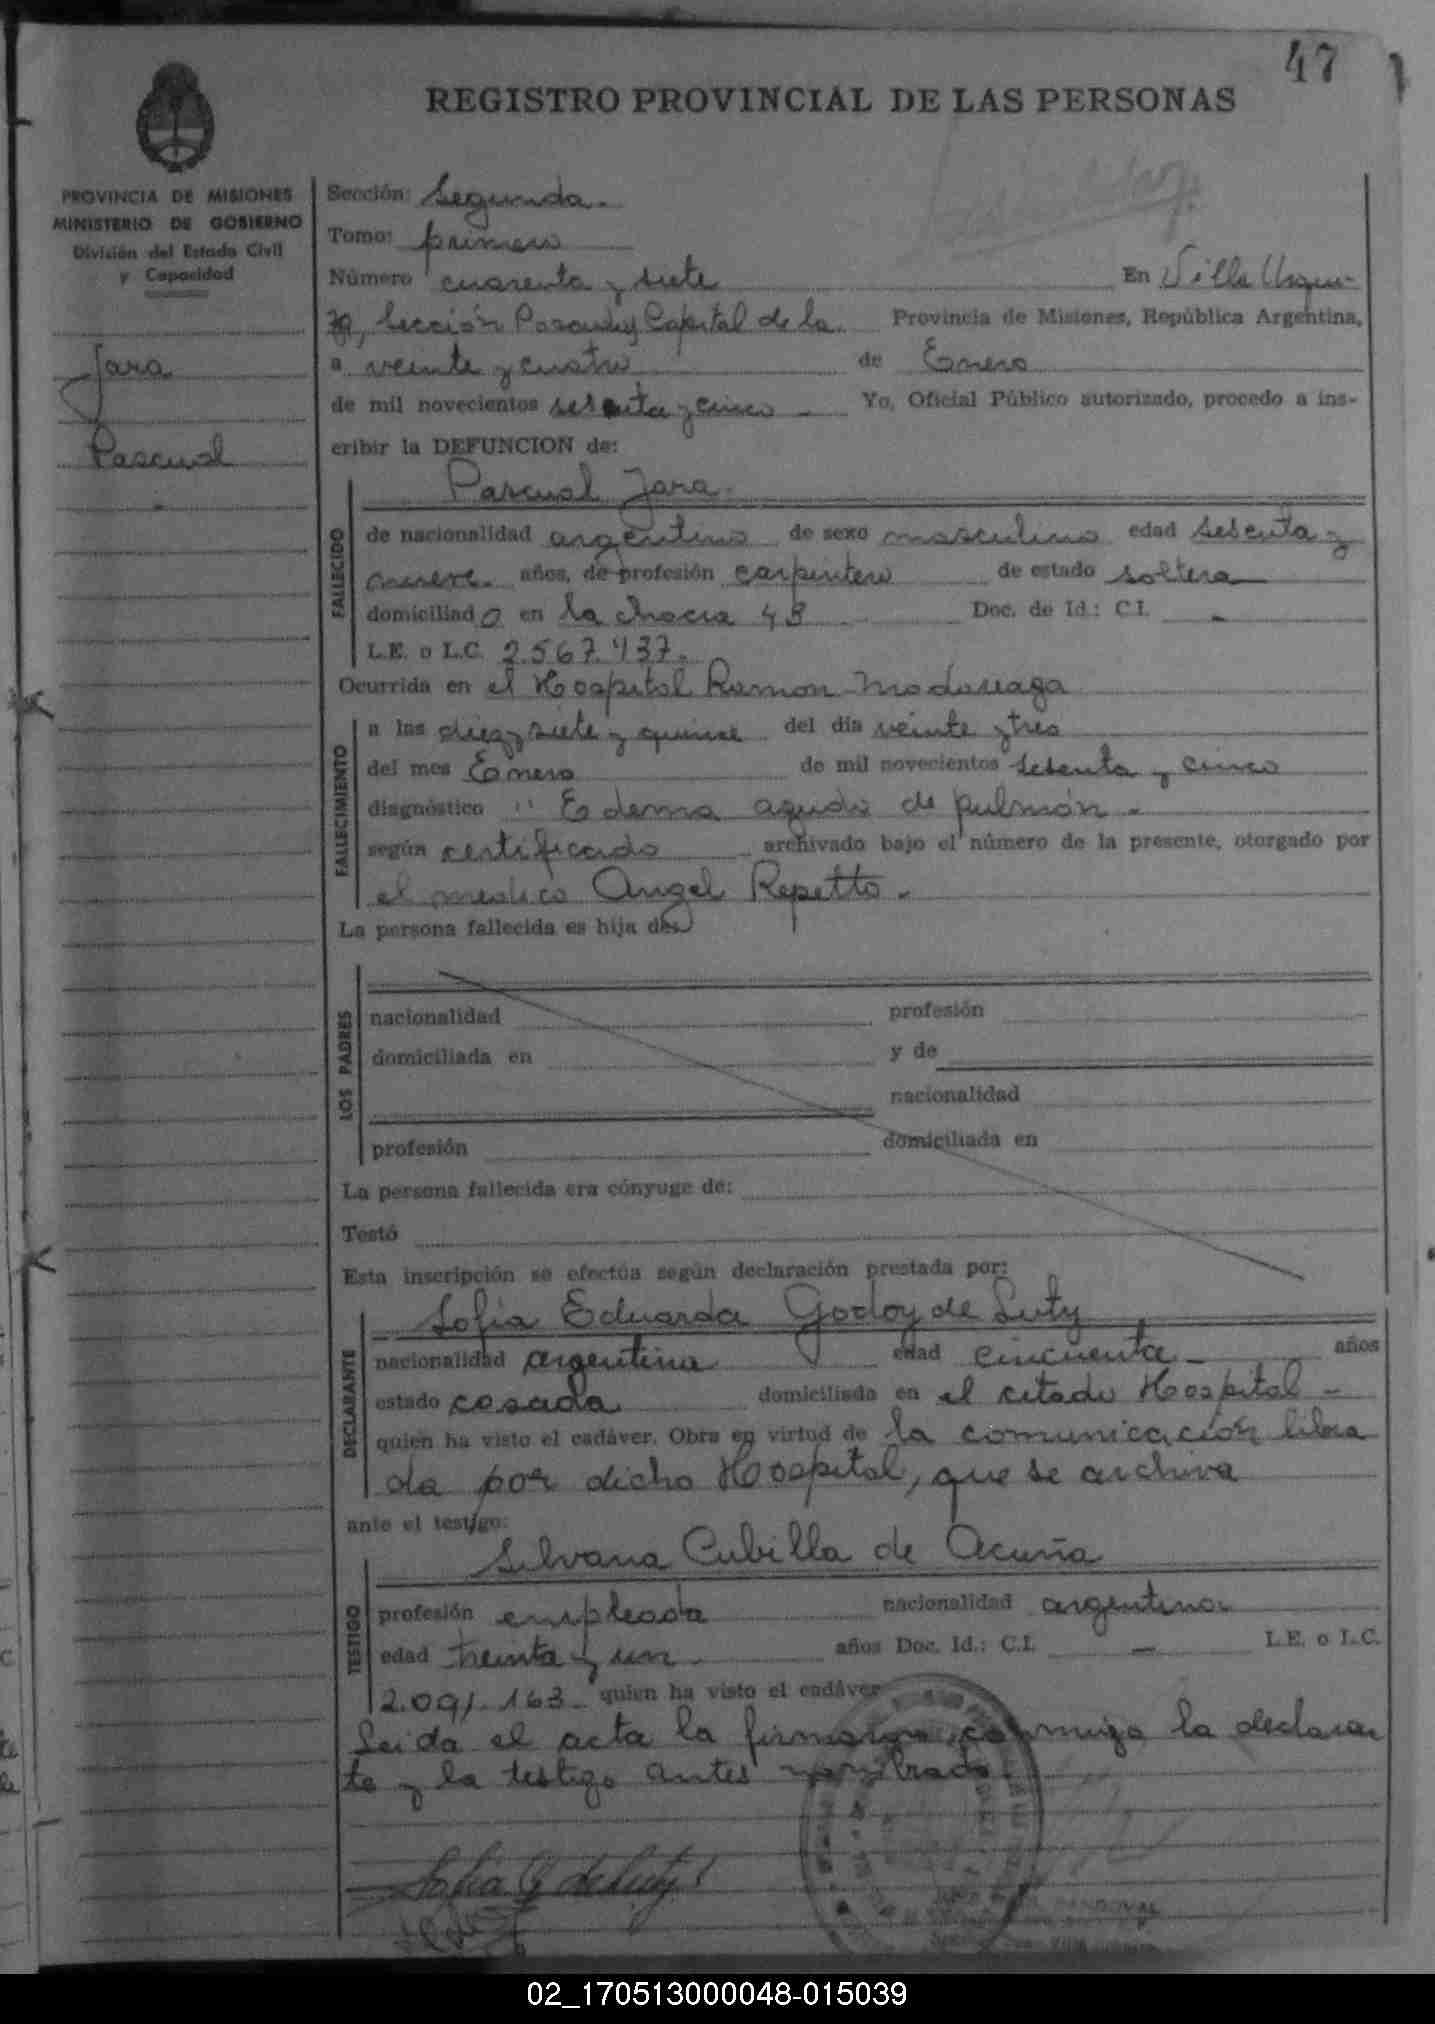 47
REGISTRO PROVINCIAL DE LAS PERSONAS
PROVINCIA DE MISIONES
MINISTERIO DE GOBIERNO
División del Estado Civil
y Capacidad
Jara
Pascual
Sección: Segunda.
Tomo: primero
Número cuarenta y siete En Villa Urqui-
za, Sección Posadas Capital de la Provincia de Misiones, República Argentina,
a veinte y cuatro de Enero
de mil novecientos sesenta y cinco Yo, Oficial Público autorizado, procedo a ins-
cribir la DEFUNCION de:
Pascual Jara.
FALLECIDO
de nacionalidad argentino de sexo masculino edad sesenta y
nueve. años, de profesión carpintero de estado soltera
domiciliado en la chacra 43 Doc. de Id.: C.I. -
L.E. o L.C. 2.567.437.
Ocurrida en el Hospital Ramon Madariaga
FALLECIMIENTO
a las diez y siete y quince del día veinte y tres
del mes Enero de mil novecientos sesenta y cinco
diagnóstico " Edema agudo de pulmón.
según certificado archivado bajo el número de la presente, otorgado por
el medico Angel Repetto.
La persona fallecida es hija de
LOS PADRES
nacionalidad profesión
domiciliada en y de
nacionalidad
profesión domiciliada en
La persona fallecida era cónyuge de:
Testó
Esta inscripción se efectúa según declaración prestada por:
DECLARANTE
Sofia Eduarda Godoy de Luty
nacionalidad argentina edad cincuenta años
estado casada domiciliada en el citado Hospital -
quien ha visto el cadáver. Obra en virtud de la comunicación libra
da por dicho Hospital, que se archiva
ante el testigo:
Silvana Cubilla de Acuña
TESTIGO
profesión empleada nacionalidad argentina
edad treinta y un años Doc. Id.: C.I. - L.E. o L.C.
2.091.163 quien ha visto el cadáver
Leida el acta la firmaron conmigo la declaran
te y la testigo antes nombrada.
Sofia G de Luty
02_170513000048-015039